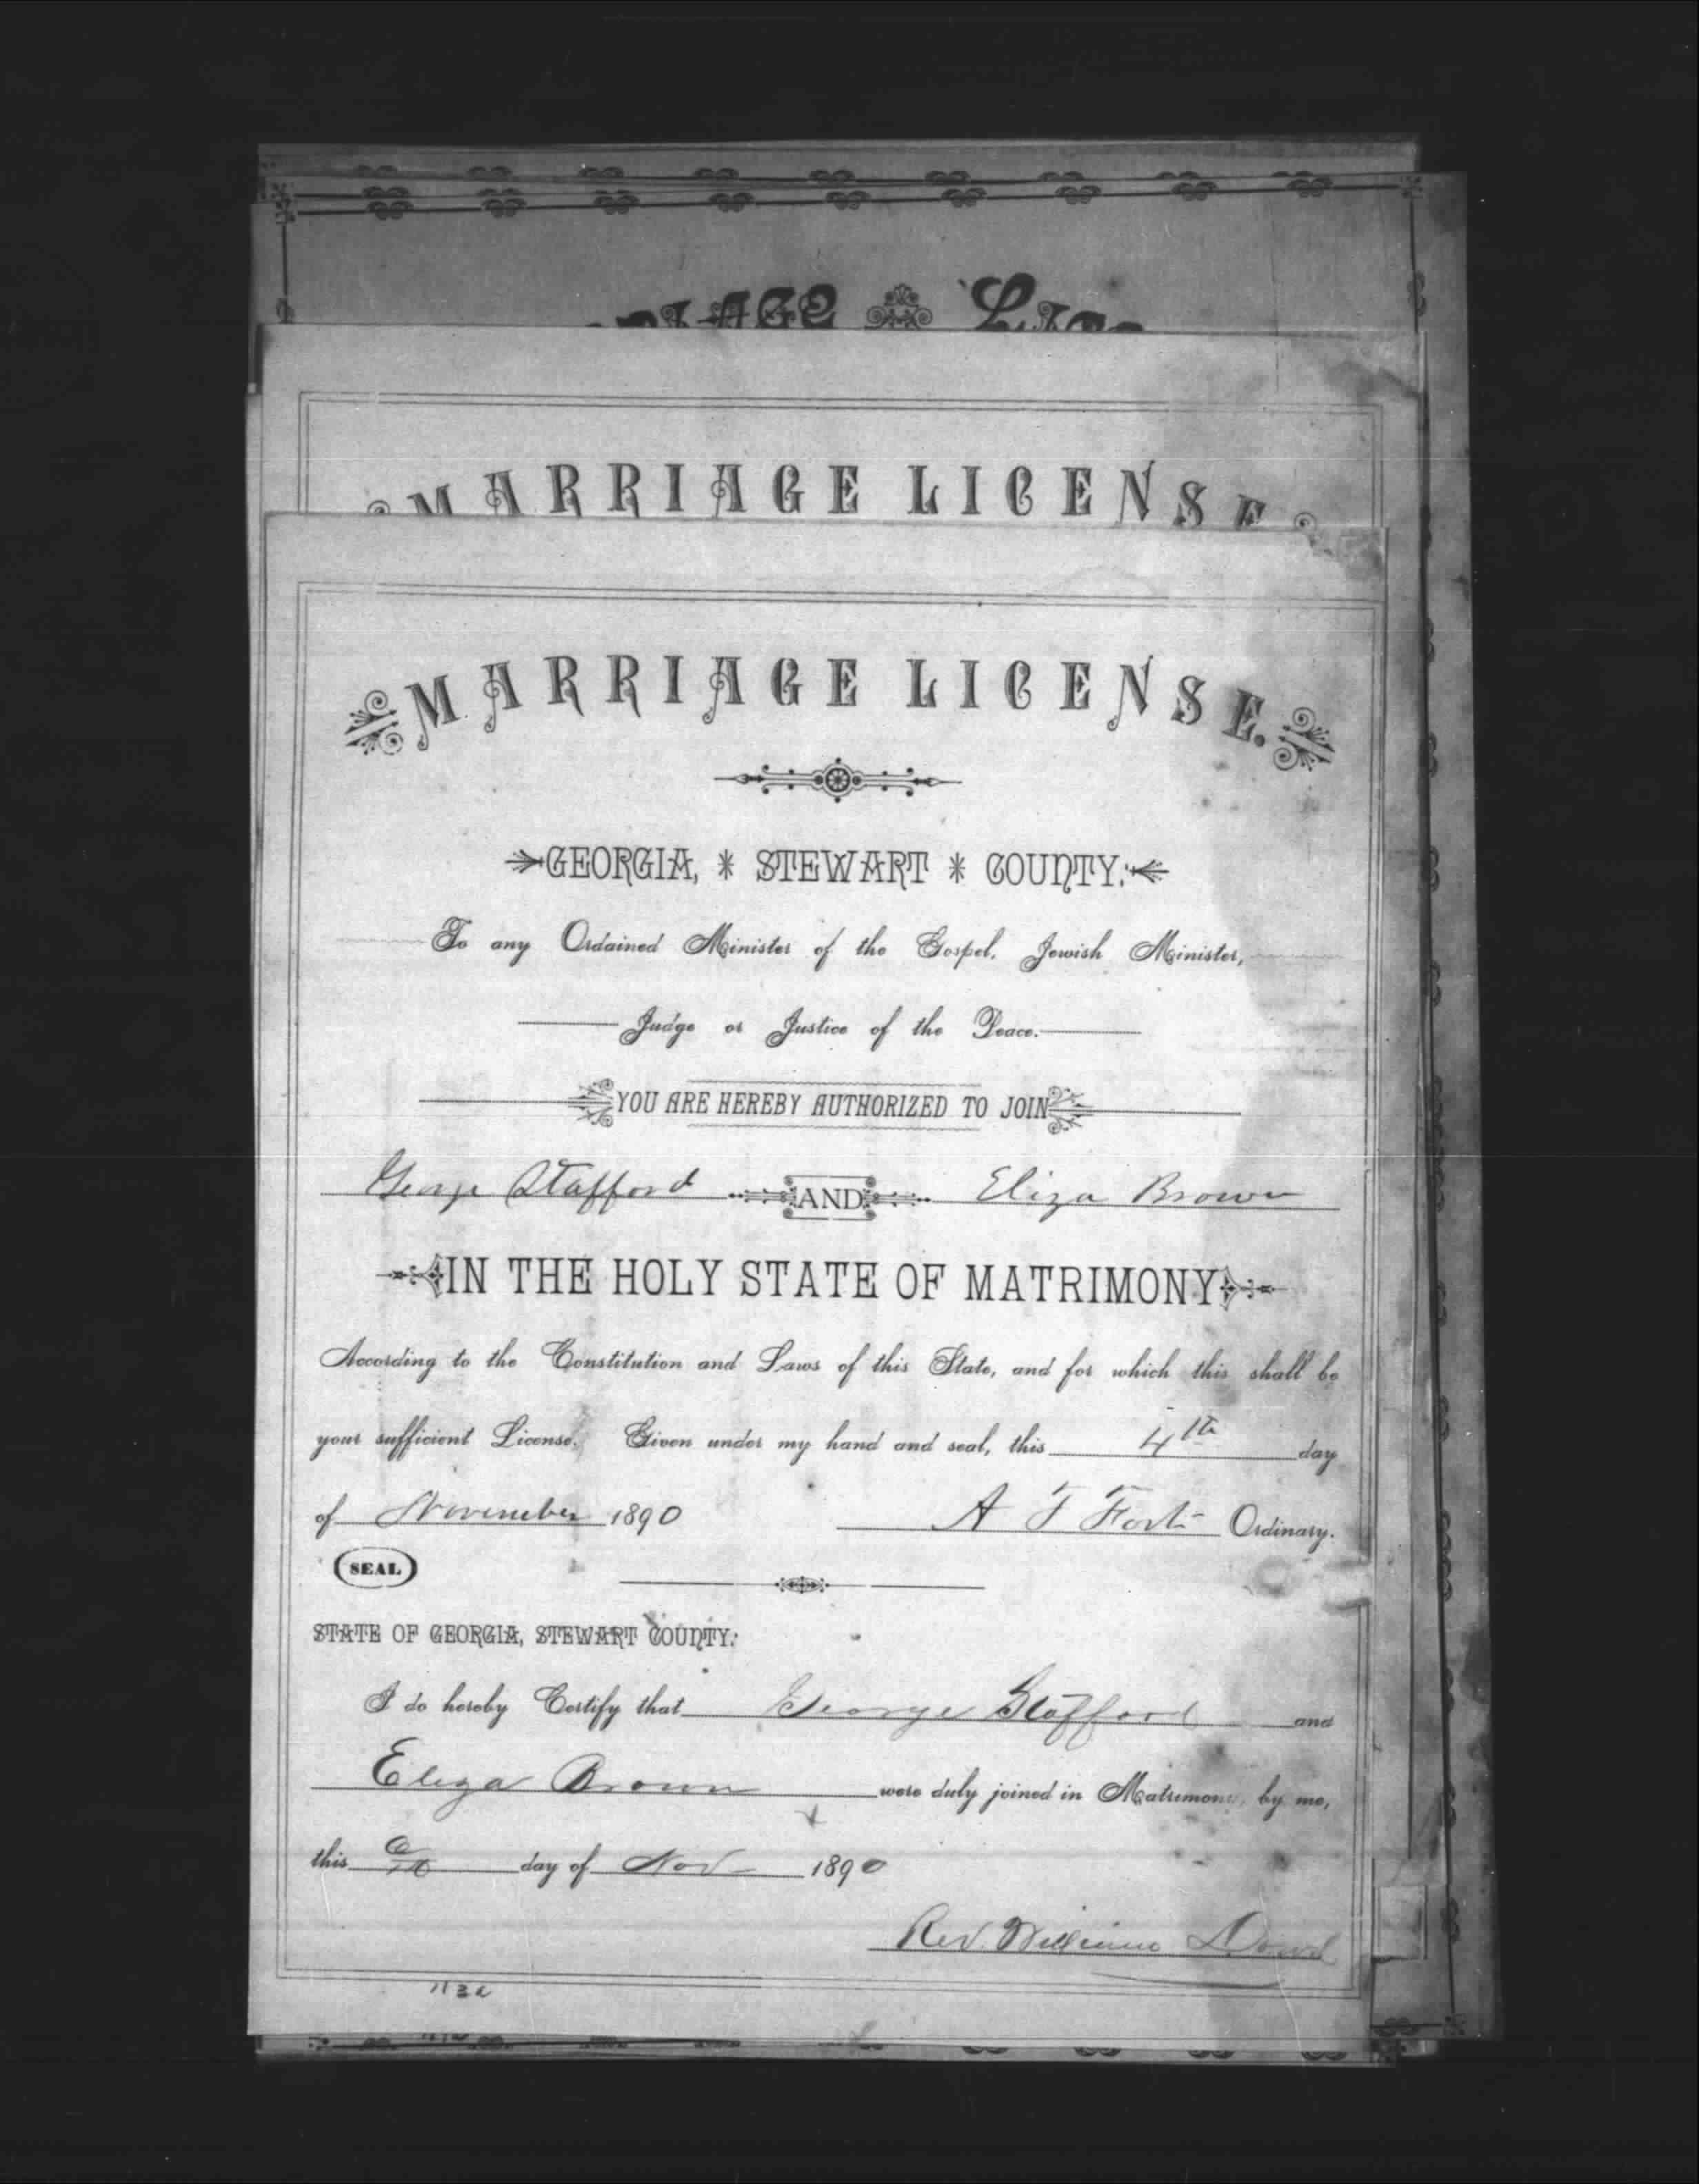 MARRIAGE LICENSE
MARRIAGE LICENSE.
GEORGIA, * STEWART * COUNTY:
To any Ordained Minister of the Gospel, Jewish Minister,
Judge or Justice of the Peace.
YOU ARE HEREBY AUTHORIZED TO JOIN
George Stafford AND Eliza Brown
IN THE HOLY STATE OF MATRIMONY
According to the Constitution and Laws of this State, and for which this shall be
your sufficient License. Given under my hand and seal, this 4th day
of November 1890 A T Fort Ordinary.
SEAL
STATE OF GEORGIA, STEWART COUNTY:
I do hereby Certify that George Stafford and
Eliza Brown were duly joined in Matrimony, by me,
this day of Nov 1890
Rev. William